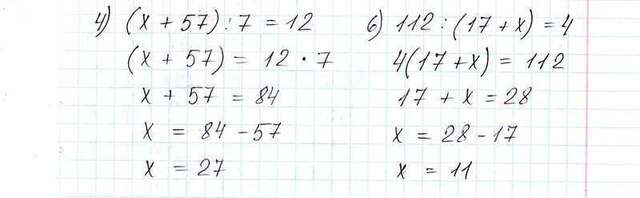 4) (x + 57) : 7 = 12
(x + 57) = 12 · 7
x + 57 = 84
x = 84 - 57
x = 27
6) 112 : (17 + x) = 4
4(17 + x) = 112
17 + x = 28
x = 28 - 17
x = 11